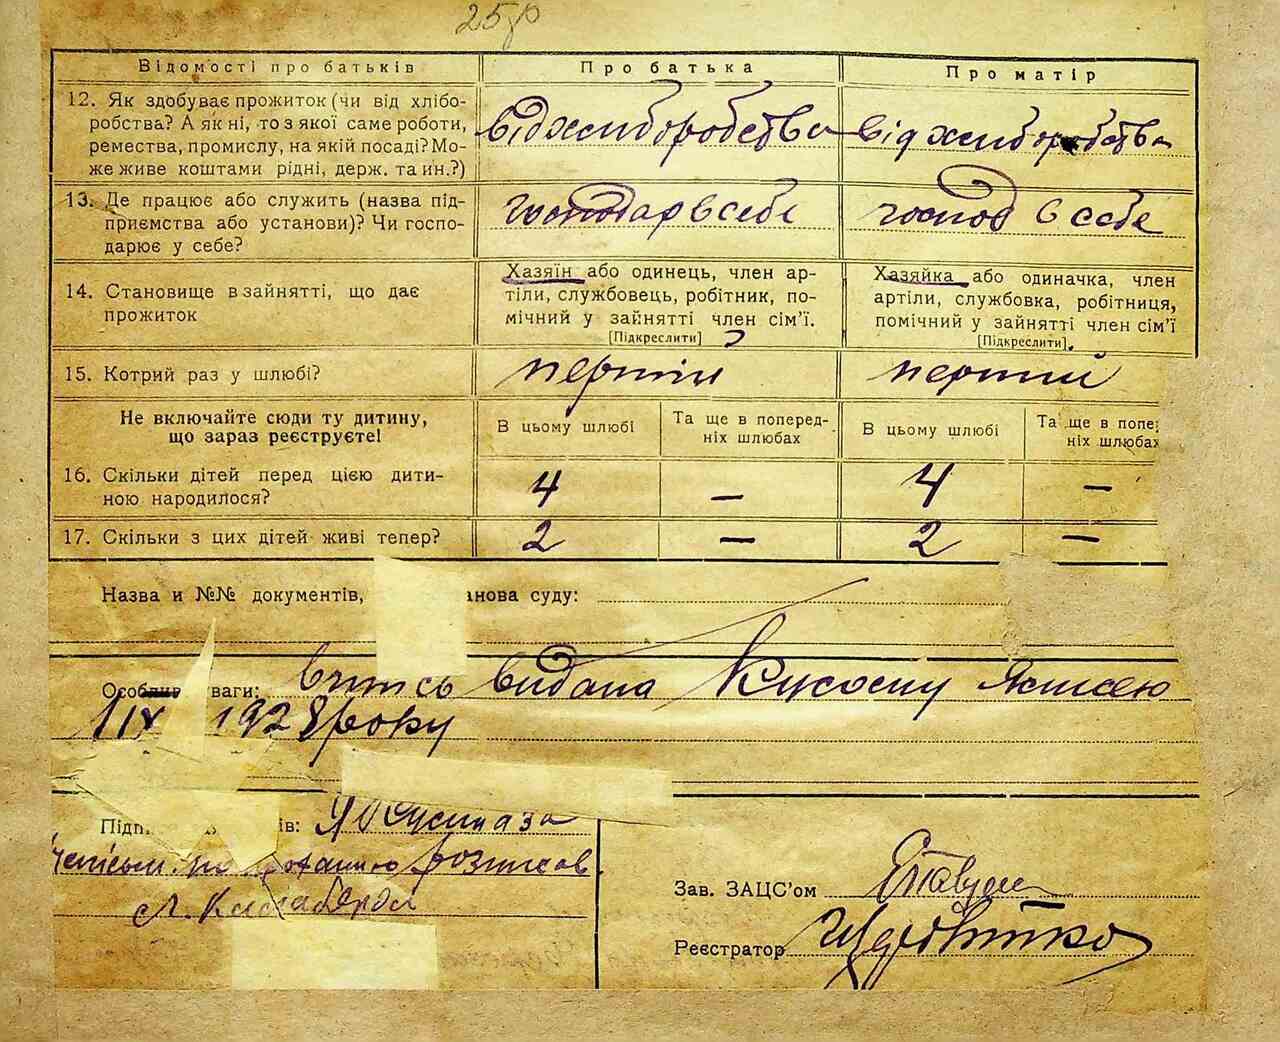 25
Відомості про батьків
Про батька
Про матір
12. Як здобуває прожиток (чи від хлібо-
робства? А як ні, то з якої саме роботи,
ремества, промислу, на якій посаді? Мо-
же живе коштами рідні, держ. та ин.?)
від хліборобства
від хліборобства
13. Де працює або служить (назва під-
приємства або установи)? Чи госпо-
дарює у себе?
господар в себе
господ в себе
14. Становище в зайнятті, що дає
прожиток
Хазяїн або одинець, член ар-
тіли, службовець, робітник, по-
мічний у зайнятті член сім'ї.
[Підкреслити]
Хазяйка або одиначка, член
артіли, службовка, робітниця,
помічний у зайнятті член сім'ї
[Підкреслити].
15. Котрий раз у шлюбі?
перший
перший
Не включайте сюди ту дитину,
що зараз реєструєте!
В цьому шлюбі
Та ще в поперед-
ніх шлюбах
В цьому шлюбі
Та ще в попе
ніх шлюбах
16. Скільки дітей перед цією дити-
ною народилося?
4 — 4 —
17. Скільки з цих дітей живі тепер?
2 — 2 —
Назва и №№ документів, анова суду:
Особлив уваги: витись видана
1 IX 1928 року
Підп ів:
розписав
Зав. ЗАЦС'ом
Реєстратор